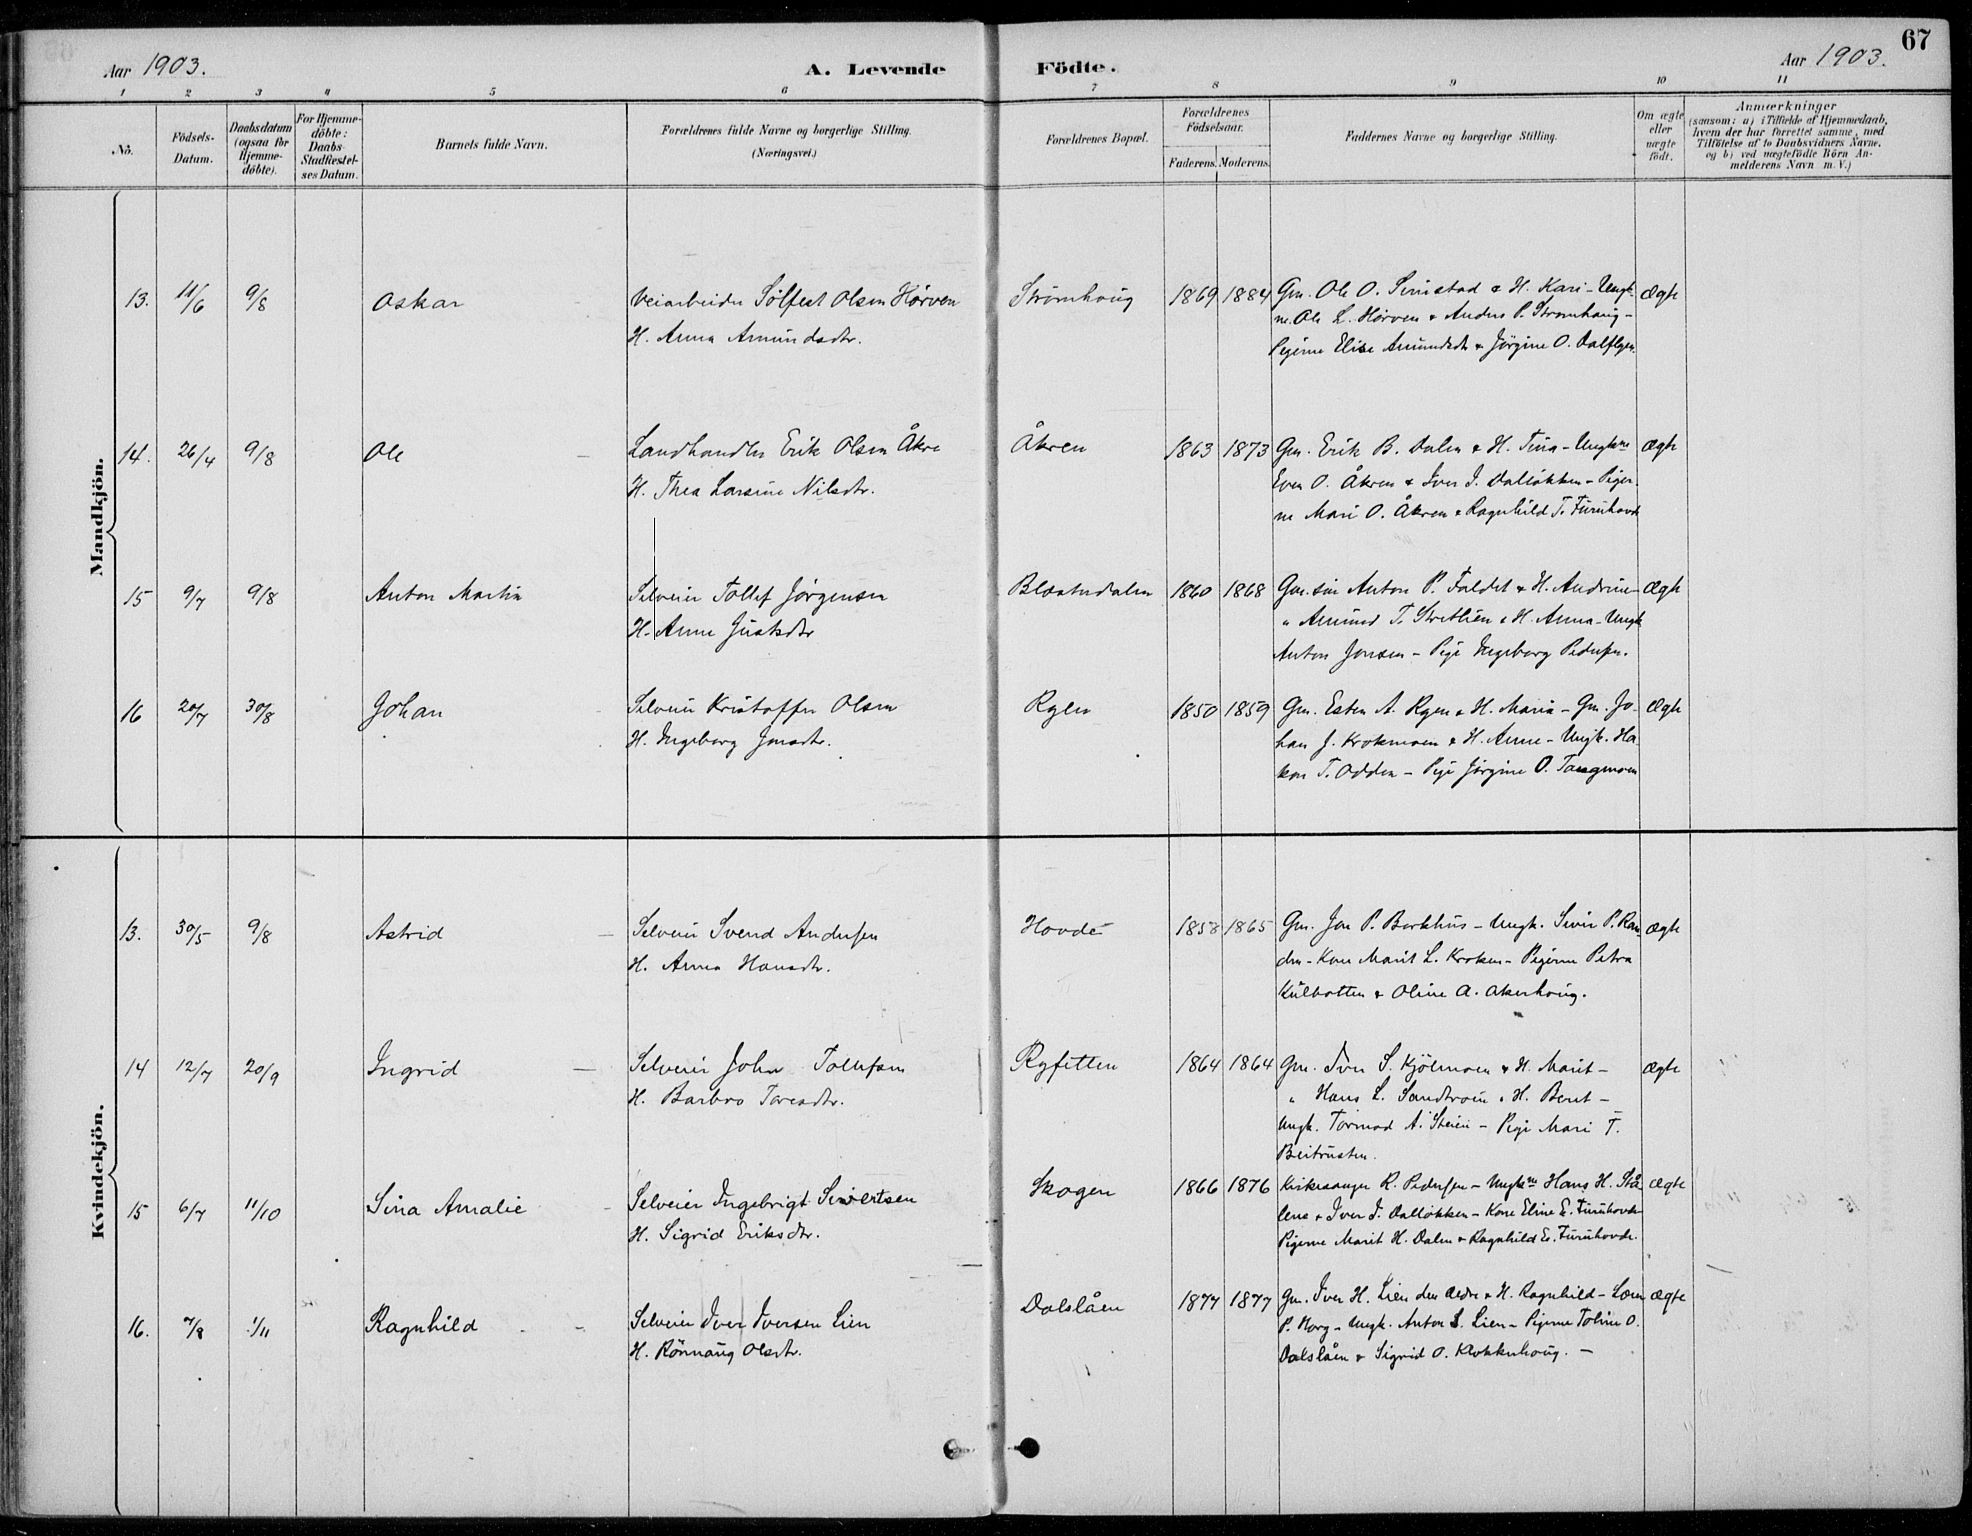 67
Aar 1903.
A. Levende Födte.
Aar 1903.
1 2 3 4 5 6 7 8 9 10 11
No.
Födsels-Datum.
Daabsdatum (ogsaa for Hjemme-döbte).
For Hjemme-döbte: Daabs-Stadfæstel-ses Datum.
Barnets fulde Navn.
Forældrenes fulde Navne og borgerlige Stilling. (Næringsvei.)
Forældrenes Bopæl.
Forældrenes Födselsaar.
Faderens. Moderens.
Faddernes Navne og borgerlige Stilling.
Om ægte eller uægte födt.
Anmærkninger
(saasom: a) i Tilfælde af Hjemmedaab,
hvem der har forrettet samme, med
Tilföielse af to Daabsvidners Navne.
og b) ved uægtefödte Börn An-
melderens Navn m. V.)
Mandkjön.
13. 11/6 9/8 Oskar Veiarbeider Sölfest Olsen Hörven Strömhoug 1869 1884 Gm. Ole O. & H. Kari - Ungk- ægte
H. Anna Amundsdtr. ne. Ole L. Hörven & Anders P. Strömhaug -
Pigerne Elise Amundsdtr & Jörgine O.
14. 26/4 9/8 Ole Landhandler Erik Olsen Åkre Åkren 1863 1873 Gm. Erik B. Dalen & H. Tina - Ungkne ægte
H. Thea Larsine Nilsdtr. Even O. Åkren & Iver J. Dalløkken - Piger-
ne Mari O. Åkren & Ragnhild T. Furuhovde
15 9/7 9/8 Anton Martin Selveier Tollef Jörgensen 1860 1868 Gm. Anton P. Faldet & H. Andrine - ægte
H. Anne " Amund T. & H. Anna - Ungk
Anton Jonsen - Pige Ingeborg Pedersen.
16 20/7 30/8 Johan Selveier Kristoffer Olsen Ryen 1850 1859 Gm. Esten A. Ryen & H. Maria - Gm. Jo- ægte
H. Ingeborg Jonsdtr. han J. Krokmoen & H. Anne - Ungk. Ha-
kon T. Odden - Pige Jörgine O. Tangmoen
Kvindekjön.
13. 30/5 9/8 Astrid Selveier Svend Andersen Hovde 1858 1865 Gm. Jon P. Barkhus - Ungk. P. Ran- ægte
H. Anna Hansdtr. den - Kone Marit L. Kroken - Pigerne Petra
Kulbotten & Oline A. Akerhoug.
14 12/7 20/9 Ingrid Selveier John Tollefsen Ryfetten 1864 1864 Gm. Iver S. Kjölmoen & H. Marit - ægte
H. Barbro Toresdtr. " Hans L. Sandtröen & H. Berit -
Ungk. Tormod A. Steien - Pige Mari T.
Beitrusten.
15 6/7 11/10 Sina Amalie Selveier Ingebrigt Sivertsen Skogen 1866 1876 Kirkesanger R. Pedersen - Ungkne Hans H. Stå- ægte
H. Sigrid Eriksdtr. lene & Iver J. Dalløkken - Kone Eline E. Furuhovde
Pigerne Marit H. Dalen & Ragnhild E. Furuhovde.
16. 7/8 1/11 Ragnhild Selveier Iver Iversen Lien Dalslåen 1877 1877 Gm. Iver H. Lien den ældre & H. Ragnhild - ægte
H. Rönnaug Olsdtr. P. - Ungk. Anton S. Lien - Pigerne Toline O.
Dalslåen & Sigrid O. Klokkerhoug. -